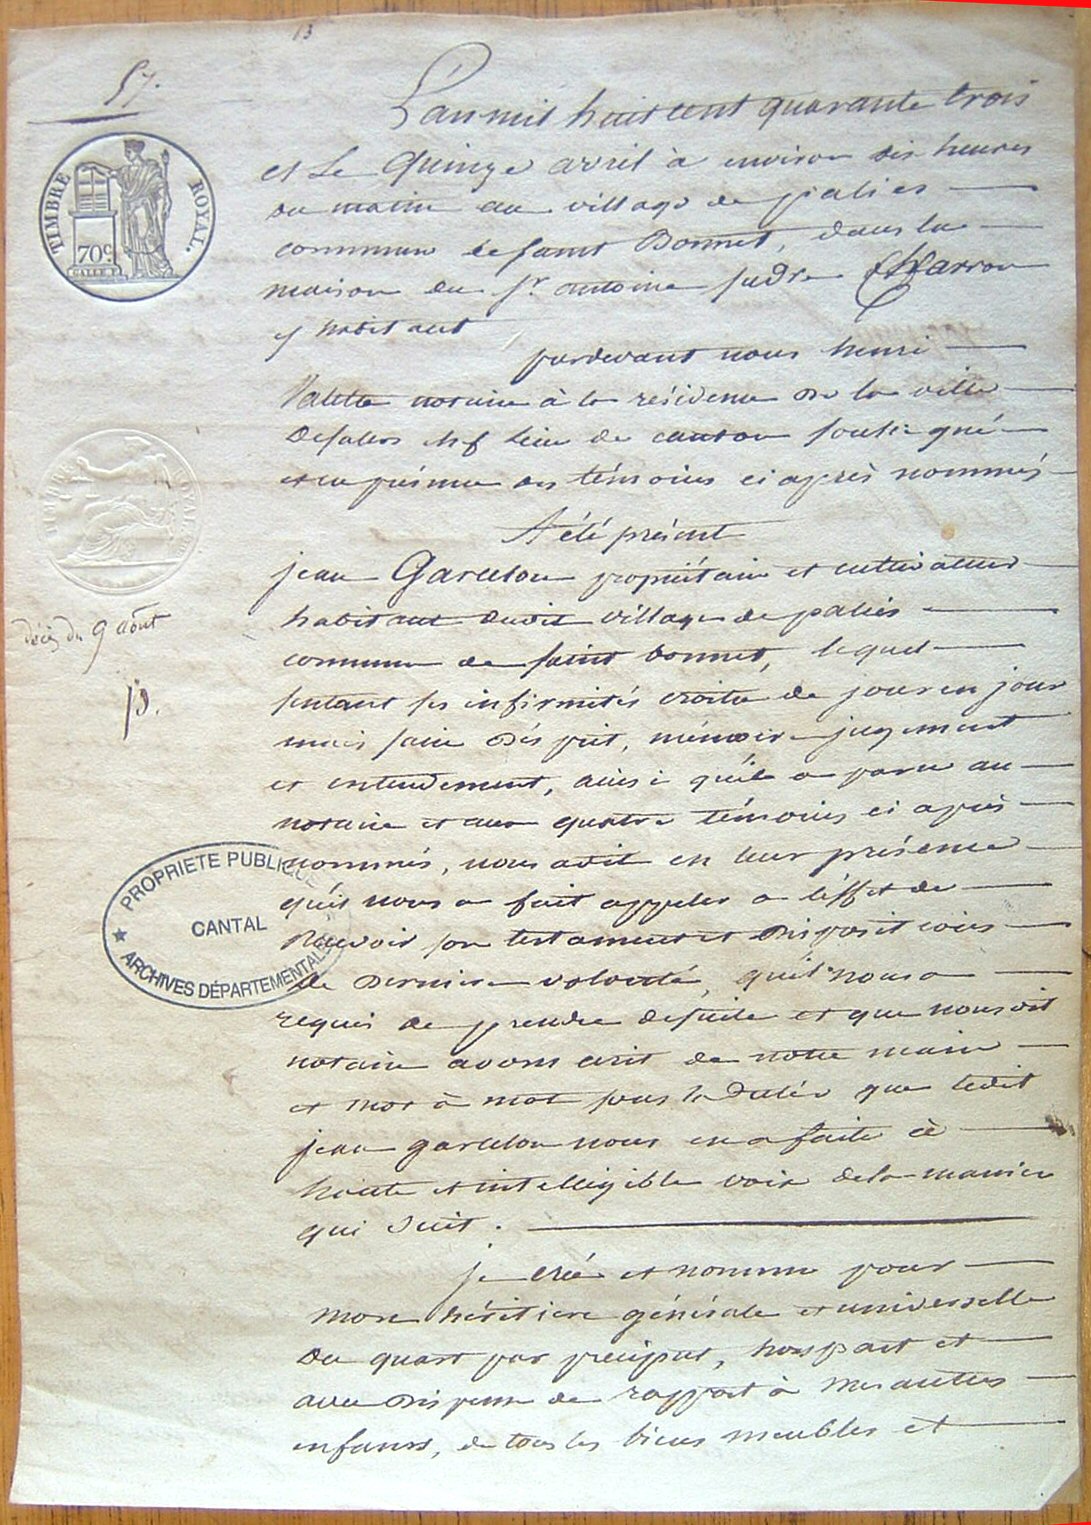 13
57.
L'an mil huit cent quarante trois
et le quinze avril à environ dix heures
du matin au village de paliès
commune de saint Bonnet, dans la
maison du Sr antoine Sudre Charron
y habitant
pardevant nous henri
Valette notaire à la résidence de la ville
de salers chef lieu de canton soussigné
et en présence des témoins ci après nommés
A été présent
jean Garcelon propriétaire et cultivateur
habitant dudit village de paliès
commune de saint bonnet, lequel
sentant ses infirmités croitre de jour en jour
mais sain d'ésprit, mémoire jugement
et entendement, ainsi qu'il a paru au
notaire et aux quatre témoins ci après
nommés, nous a dit en leur présence
qu'il nous a fait appeler a l'éffet de
recevoir son testament et dispositions
de dernière volonté, qu'il nous a
requis de prendre de suite et que nous dit
notaire avons écrit de notre main
et mot à mot sous la dictée que ledit
jean garcelon nous en a faite à
haute et intelligible voix de la manière
qui suit.
je crée et nomme pour
mon héritière générale et universelle
du quart par préciput, hors part et
avec dispense de rapport à mes autres
enfants, de tous les biens meubles et
TIMBRE ROYAL.
70c
décès du 9 août
PROPRIETE PUBLIQUE
CANTAL
ARCHIVES DÉPARTEMENTALES